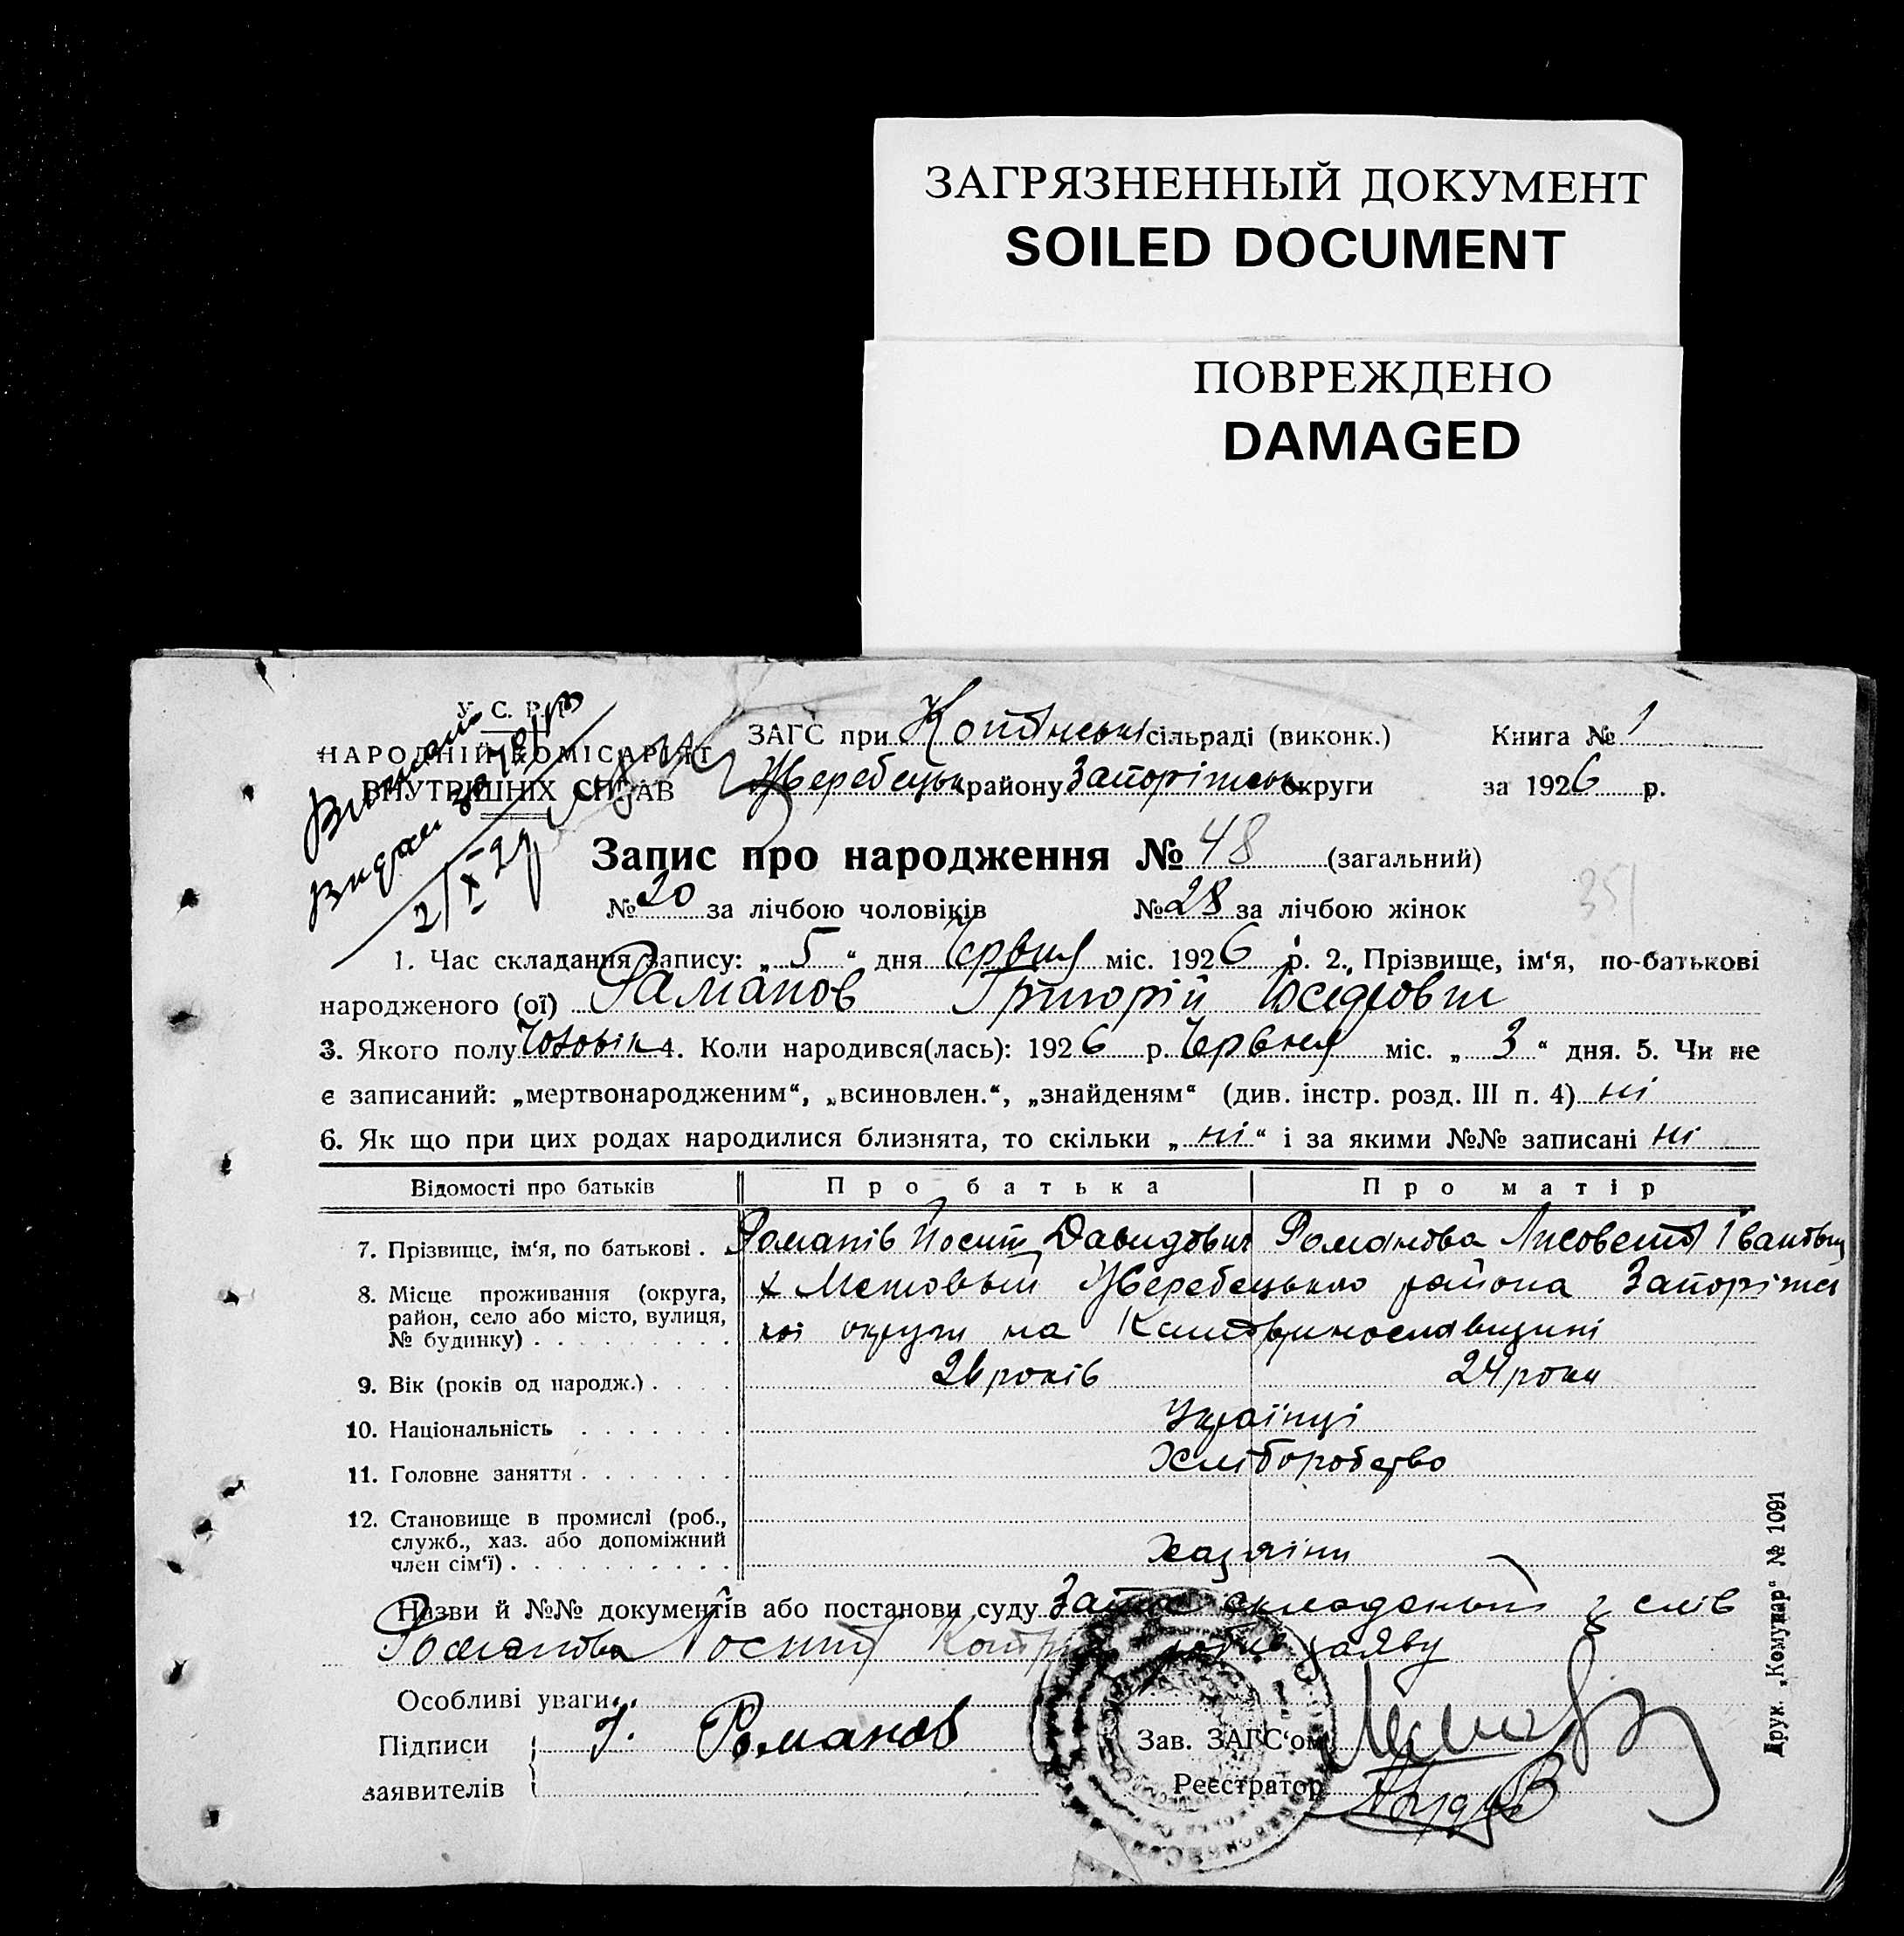 ЗАГРЯЗНЕННЫЙ ДОКУМЕНТ
SOILED DOCUMENT
ПОВРЕЖДЕНО
DAMAGED
У. С. Р. Р.
НАРОДНІЙ КОМІСАРІЯТ
ВНУТРІШНІХ СПРАВ
ЗАГС при сільраді (виконк.)
Книга № 1
Жеребецьк району Запоріжськ округи
за 1926 р.
Запис про народження № 48 (загальний)
№ 20 за лічбою чоловіків № 28 за лічбою жінок
351
1. Час складання запису: „ 5 “ дня Червня міс. 1926 р. 2. Прізвище, ім‘я, по-батькові
народженого (ої) Раманов Григорій
3. Якого полу Чоловік 4. Коли народився(лась): 1926 р. Червня міс. „ 3 “ дня. 5. Чи не
є записаний: „мертвонародженим“, „всиновлен.“, „знайденям“ (див. інстр. розд. III п. 4) ні
6. Як що при цих родах народилися близнята, то скільки „ ні “ і за якими №№ записані ні
Відомості про батьків Про батька Про матір
7. Прізвище, ім‘я, по батькові . Романів Йосип Давидович Романова
8. Місце проживання (округа, район, село або місто, вулиця, № будинку) . . . . . . . . .
х Жеребецького района
округи на
9. Вік (років од народж.) . . . . 26 років 24 роки
10. Національність . . . . . . . Українці
11. Головне заняття . . . . . . . Хліборобство
12. Становище в промислі (роб., служб., хаз. або допоміжний член сім‘ї) . . . . . . . . . . Хазяїни
Назви й №№ документів або постанови суду складаний з слів
Романова заяву
Особливі уваги:
Підписи
заявителів
Романов
Зав. ЗАГС‘ом
Реєстратор
Друк. „Комунар“ № 1091